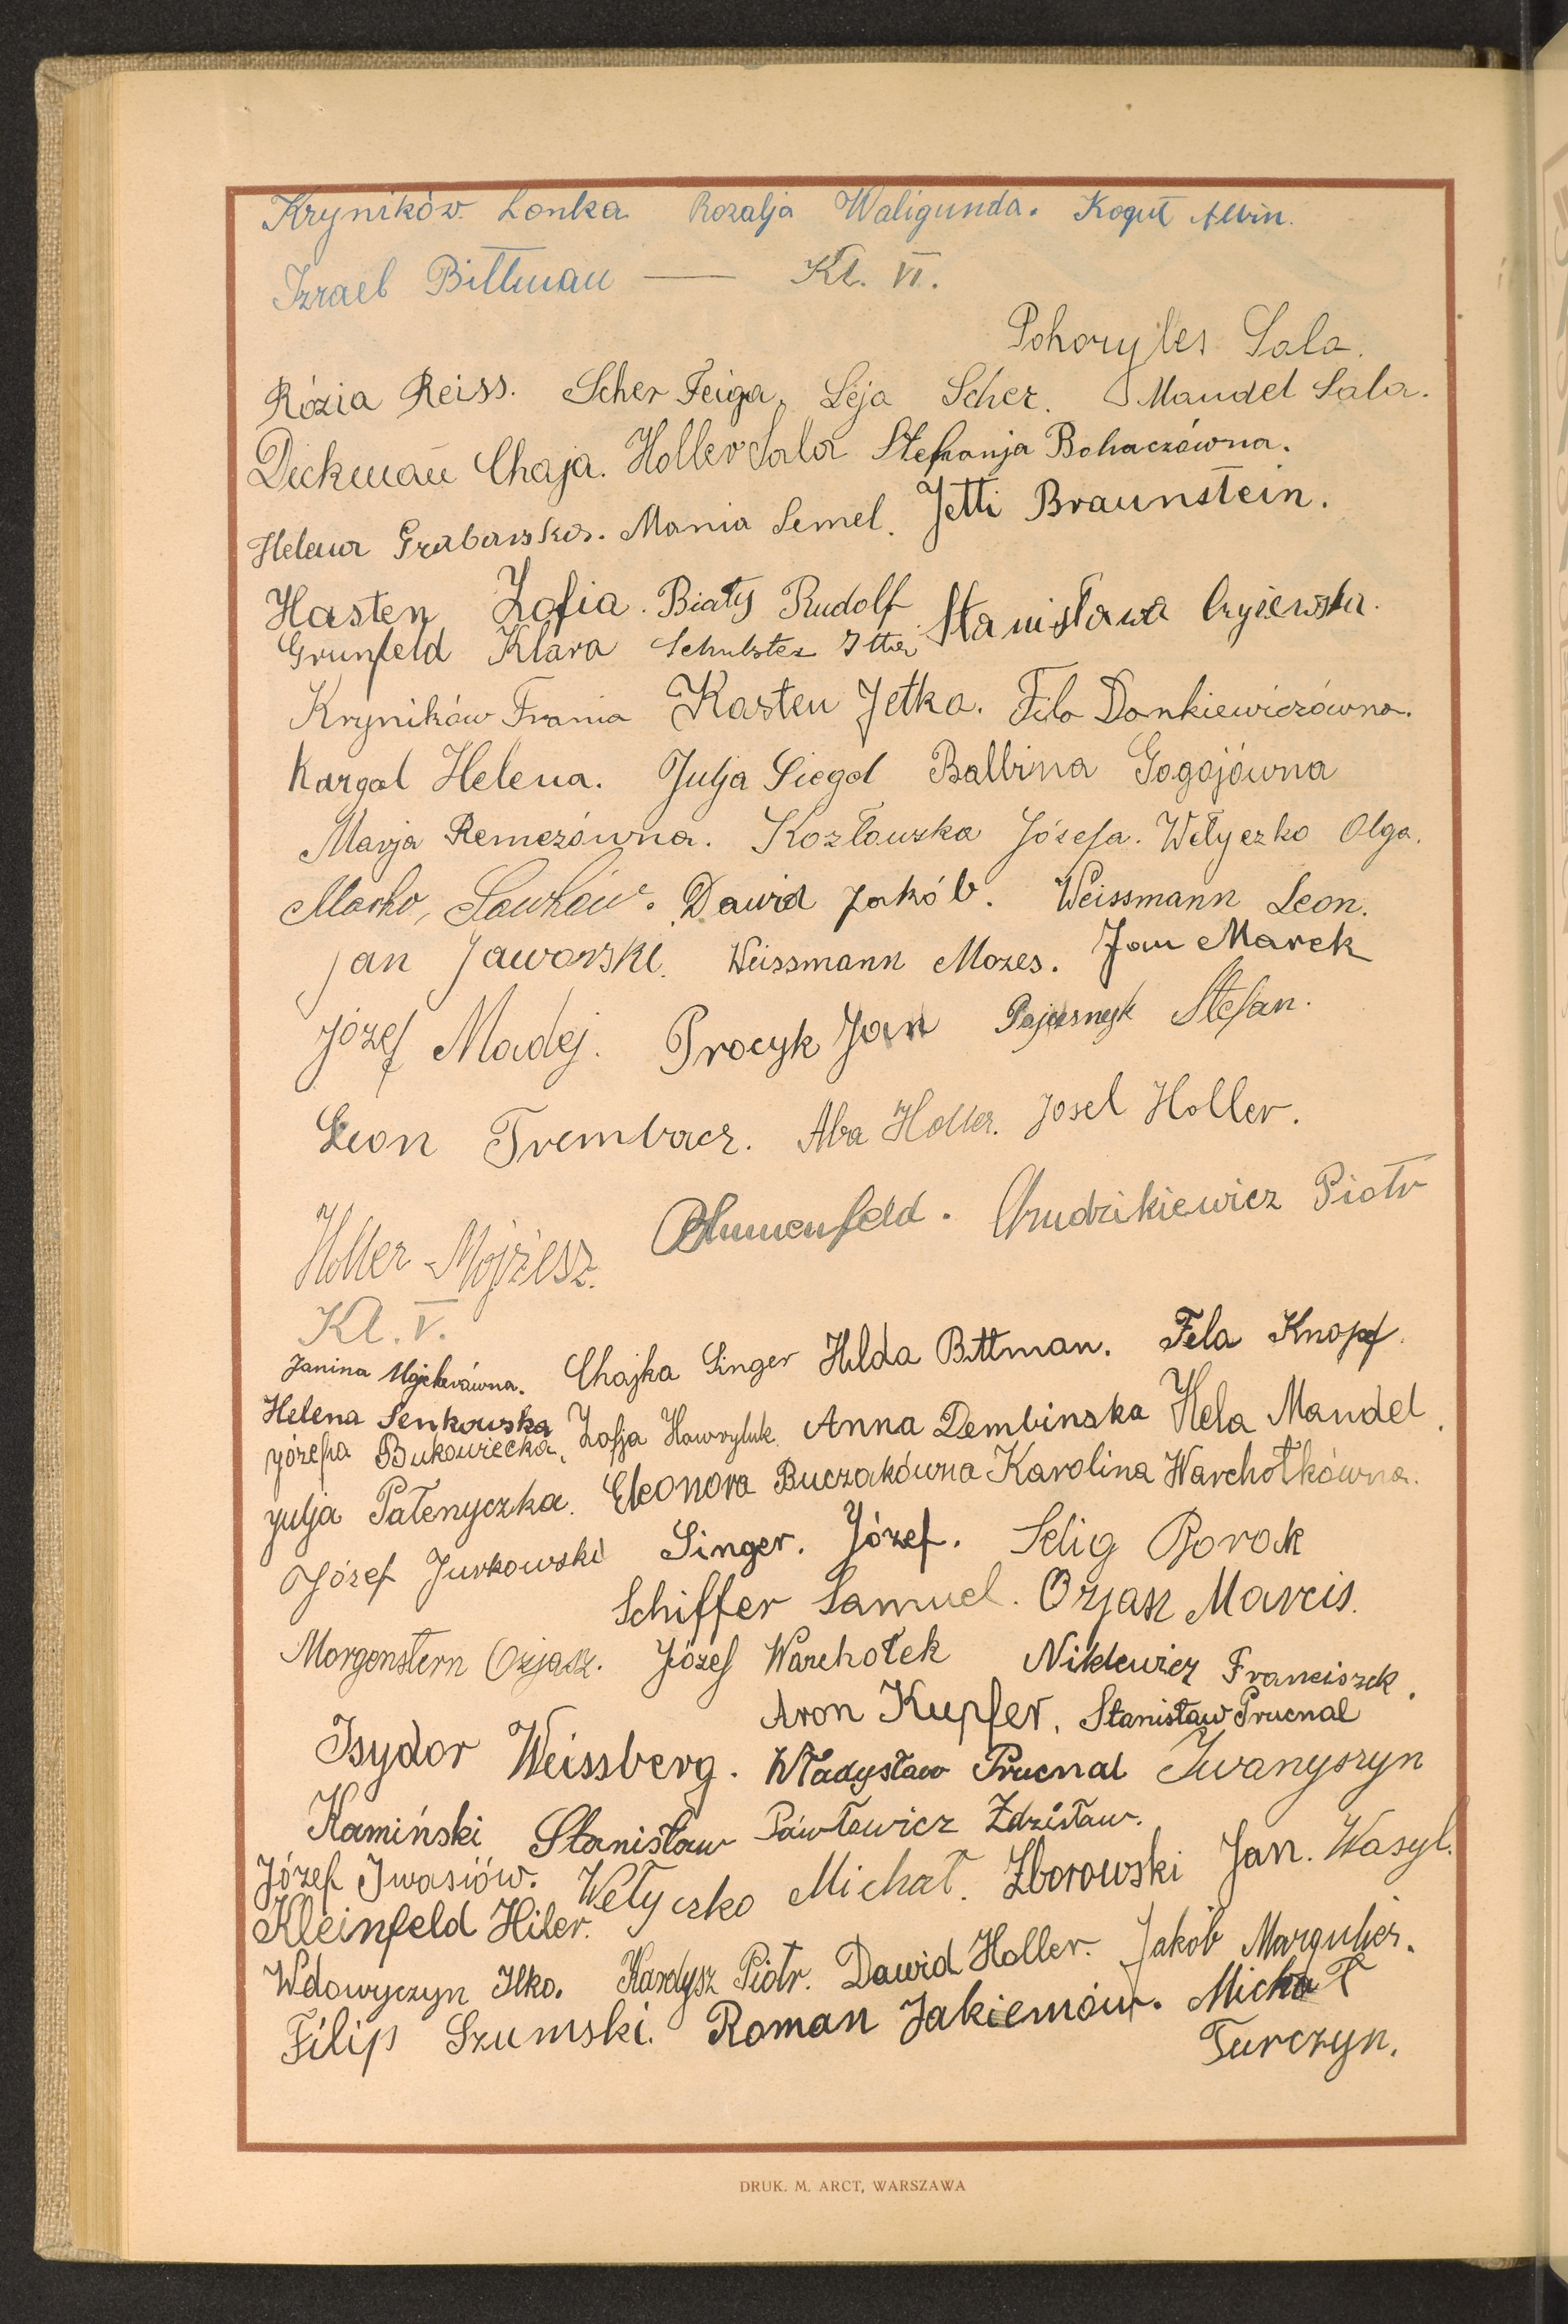 Kryników Lonka Rozalja Waligunda. Kogut Alwin.
Izrael Bittman — Kl. VI.
Pohoryles Sala.
Rózia Reiss. Scher Feiga. Leja Scher. Mandel Sala.
Dickman Chaja. Holler Sala Stefanja Bohaczówna.
Helena Grabarska. Mania Semel. Jetti Braunstein.
Hasten Zofia. Biały Rudolf Stanisława
Grünfeld Klara Schulster Itta
Kryników Frania Kasten Jetka. Fila Dankiewiczówna.
Kargol Helena. Julja Siegel Balbina Gogojówna
Marja Remezówna. Kozłowska Józefa. Wełyczko Olga.
Marko, Sawków. Dawid Jakób. Weissmann Leon.
Jan Jaworski. Weissmann Mozes. Jan Marek
Józef Madej. Procyk Jan Stefan.
Leon Trembacz. Aba Holler. Josel Holler.
Holler Mojżesz. Blumenfeld. Chudzikiewicz Piotr
Kl. V.
Janina Chajka Singer Hilda Bittman. Fela Knopf.
Helena Senkowska Zofja Hawryluk. Anna Dembinska Hela Mandel.
Józefa Bukowiecka,
Julja Patenyczka. Eleonora Buczakówna Karolina Warchołkówna.
Józef Jurkowski Singer. Józef. Selig Borak
Schiffer Samuel. Ozjasz Marcis.
Morgenstern Ozjasz. Józef Warchołek Niklewicz Franciszek.
Aron Kupfer, Stanisław Prucnal
Isydor Weissberg. Władysław Prucnal Iwanyszyn
Kamiński Stanisław Pawłowicz Zdzisław.
Józef Iwasiów. Wełyczko Michał. Zborowski Jan. Wasyl.
Kleinfeld Hiler.
Wdowyczyn Ilko. Kardysz Piotr. Dawid Holler. Jakób Margulies.
Filip Szumski. Roman Jakiemów. Michał
Turczyn.
DRUK. M. ARCT, WARSZAWA